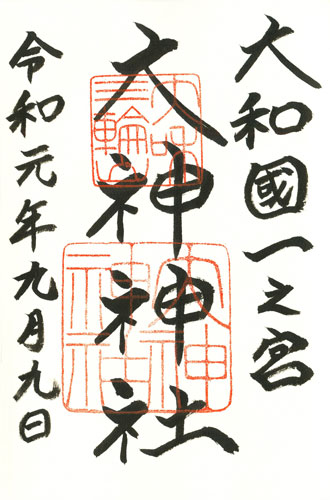 大和國一之宮
大神神社
令和元年九月九日
三輪明神
大神神社